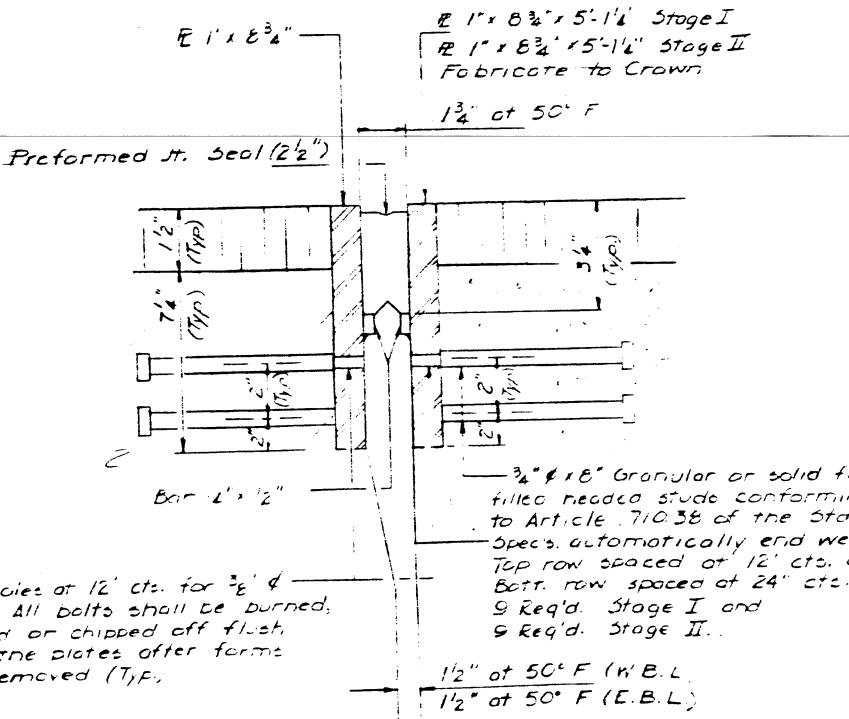 ⅊ 1" x 8 3/4"
⅊ 1" x 8 3/4" x 5'-1 1/4" Stage I
⅊ 1" x 8 3/4" x 5'-1 1/4" Stage II
Fabricate to Crown
1 3/4" at 50° F
Preformed Jt. Seal (2 1/2")
1 1/2"
(Typ)
7 1/4"
(Typ)
3 1/4"
(Typ.)
2"
(Typ)
2"
2"
(Typ)
2"
2
Bar 1/4" x 1/2"
3/4" ¢ x 8" Granular or solid
filled headed studs conforming
to Article 710.38 of the
Specs. automatically end
Top row spaced at 12" cts.
Bott. row spaced at 24" cts.
9 Req'd. Stage I and
9 Req'd. Stage II.
at 12" cts. for 3/8" ¢
All bolts shall be burned,
or chipped off flush
the plates after forms
removed (Typ.)
1 1/2" at 50° F (W.B.L.
1 1/2" at 50° F (E.B.L.)